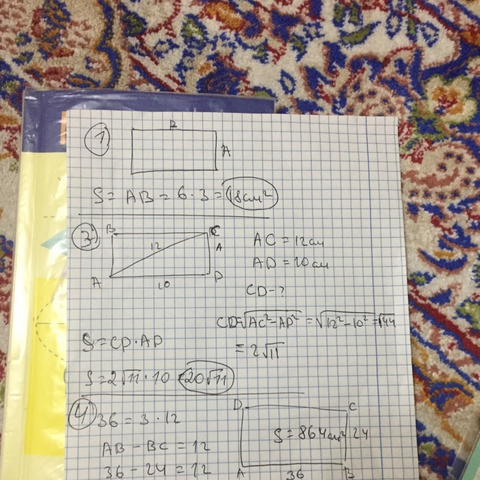 1
B
A
S = AB = 6 · 3 = 18 см²
3
B C
12
A
A D
10
AC = 12 см
AD = 10 см
CD - ?
CD = √AC² - AD² = √12² - 10² = √44
= 2√11
S = CD · AD
S = 2√11 · 10 = 20√11
4
36 = 3 · 12
AB - BC = 12
36 - 24 = 12
D C
S = 864 см² 24
A 36 B